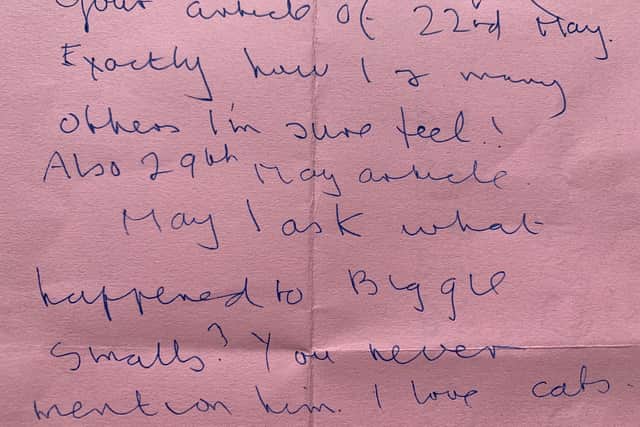 Your article of 22nd May.
Exactly how I & many
others I'm sure feel!
Also 29th May article.
May I ask what
happened to Biggie
Smalls? You never
mention him. I love cats.